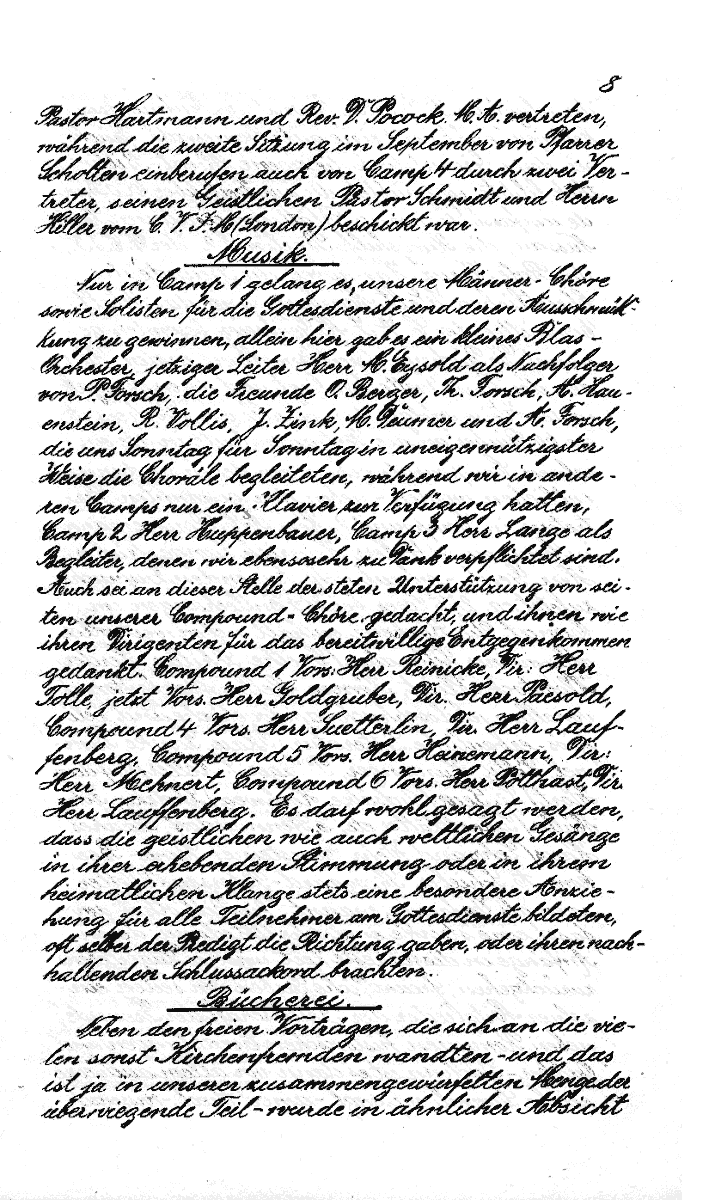 8
Pastor Hartmann und Rev. D. Pocock. M. A. vertreten,
während die zweite Sitzung im September von Pfarrer
Scholten einberufen auch von Camp 4 durch zwei Ver-
treter, seinen Geistlichen Pastor Schmidt und Herrn
Hiller vom C. V. J. M (London) beschickt war.
Musik.
Nur in Camp 1 gelang es, unsere Männer-Chöre
sowie Solisten für die Gottesdienste und deren Ausschmük-
kung zu gewinnen, allein hier gab es ein kleines Blas-
Orchester, jetziger Leiter Herr M. Eysold als Nachfolger
von P. Forsch, die Freunde O. Berger, Th. Forsch, A. Hau-
enstein, R. Vollis, J. Zink, M. Teumer und A. Forsch,
die uns Sonntag für Sonntag in uneigennützigster
Weise die Choräle begleiteten, während wir in ande-
ren Camps nur ein Klavier zur Verfügung hatten,
Camp 2 Herr Huppenbauer, Camp 3 Herr Lange als
Begleiter, denen wir ebensosehr zu Dank verpflichtet sind.
Auch sei an dieser Stelle der steten Unterstützung von sei-
ten unserer Compound-Chöre gedacht, und ihnen wie
ihren Dirigenten für das bereitwillige Entgegenkommen
gedankt. Compound 1 Vors: Herr Reinicke, Dir: Herr
Tolle, jetzt Vors. Herr Goldgruber, Dir. Herr Paesold,
Compound 4 Vors. Herr Suetterlin, Dir. Herr Lauf-
fenberg, Compound 5 Vors. Herr Heinemann, Dir:
Herr Mehnert, Compound 6 Vors. Herr Potthast, Dir.
Herr Lauffenberg. Es darf wohl gesagt werden,
dass die geistlichen wie auch weltlichen Gesänge
in ihrer erhebenden Stimmung oder in ihrem
heimatlichen Klange stets eine besondere Anzie-
hung für alle Teilnehmer am Gottesdienste bildeten,
oft selber der Predigt die Richtung gaben, oder ihren nach-
hallenden Schlussackord brachten.
Bücherei.
Neben den freien Vorträgen, die sich an die vie-
len sonst Kirchenfremden wandten - und das
ist ja in unserer zusammengewürfelten Menge der
überwiegende Teil - wurde in ähnlicher Absicht